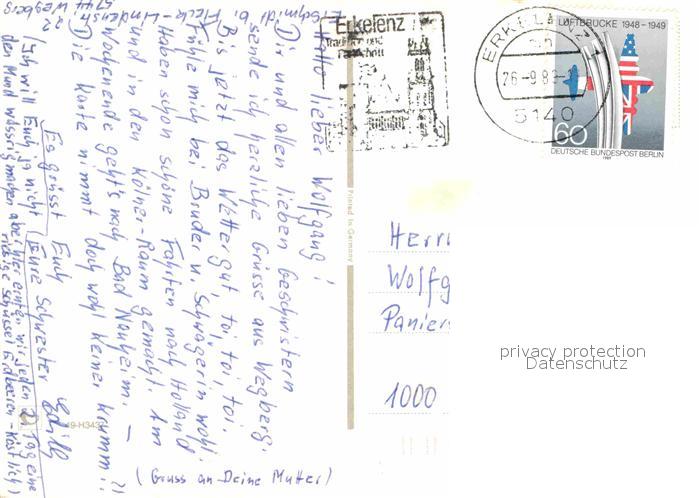 Erkelenz
Tradition und
Fortschritt
ERKELENZ 1
26.-9.89-1
5140
LUFTBRÜCKE 1948-1949
60
DEUTSCHE BUNDESPOST BERLIN
1989
Hallo lieber Wolfgang!
Dir und allen lieben Geschwistern
sende ich herzliche Grüsse aus Wegberg.
Bis jetzt das Wetter gut, toi, toi, toi.
Fühle mich bei Bruder u. Schwägerin wohl.
Haben schon schöne Fahrten nach Holland
und in den Kölner-Raum gemacht. Am
Wochenende geht's nach Bad Nauheim. –
Die Karte nimmt doch wohl keiner krumm?!
Es grüsst Euch
Eure Schwester
(Ich will Euch ja nicht
den Mund wässrig machen, aber hier ernten wir jeden 2. Tag eine
riesige Schüssel Erdbeeren - köstlich)
(Gruss an Deine Mutter)
Printed in Germany
Herrn
Wolfg
Panier
1000
privacy protection
Datenschutz